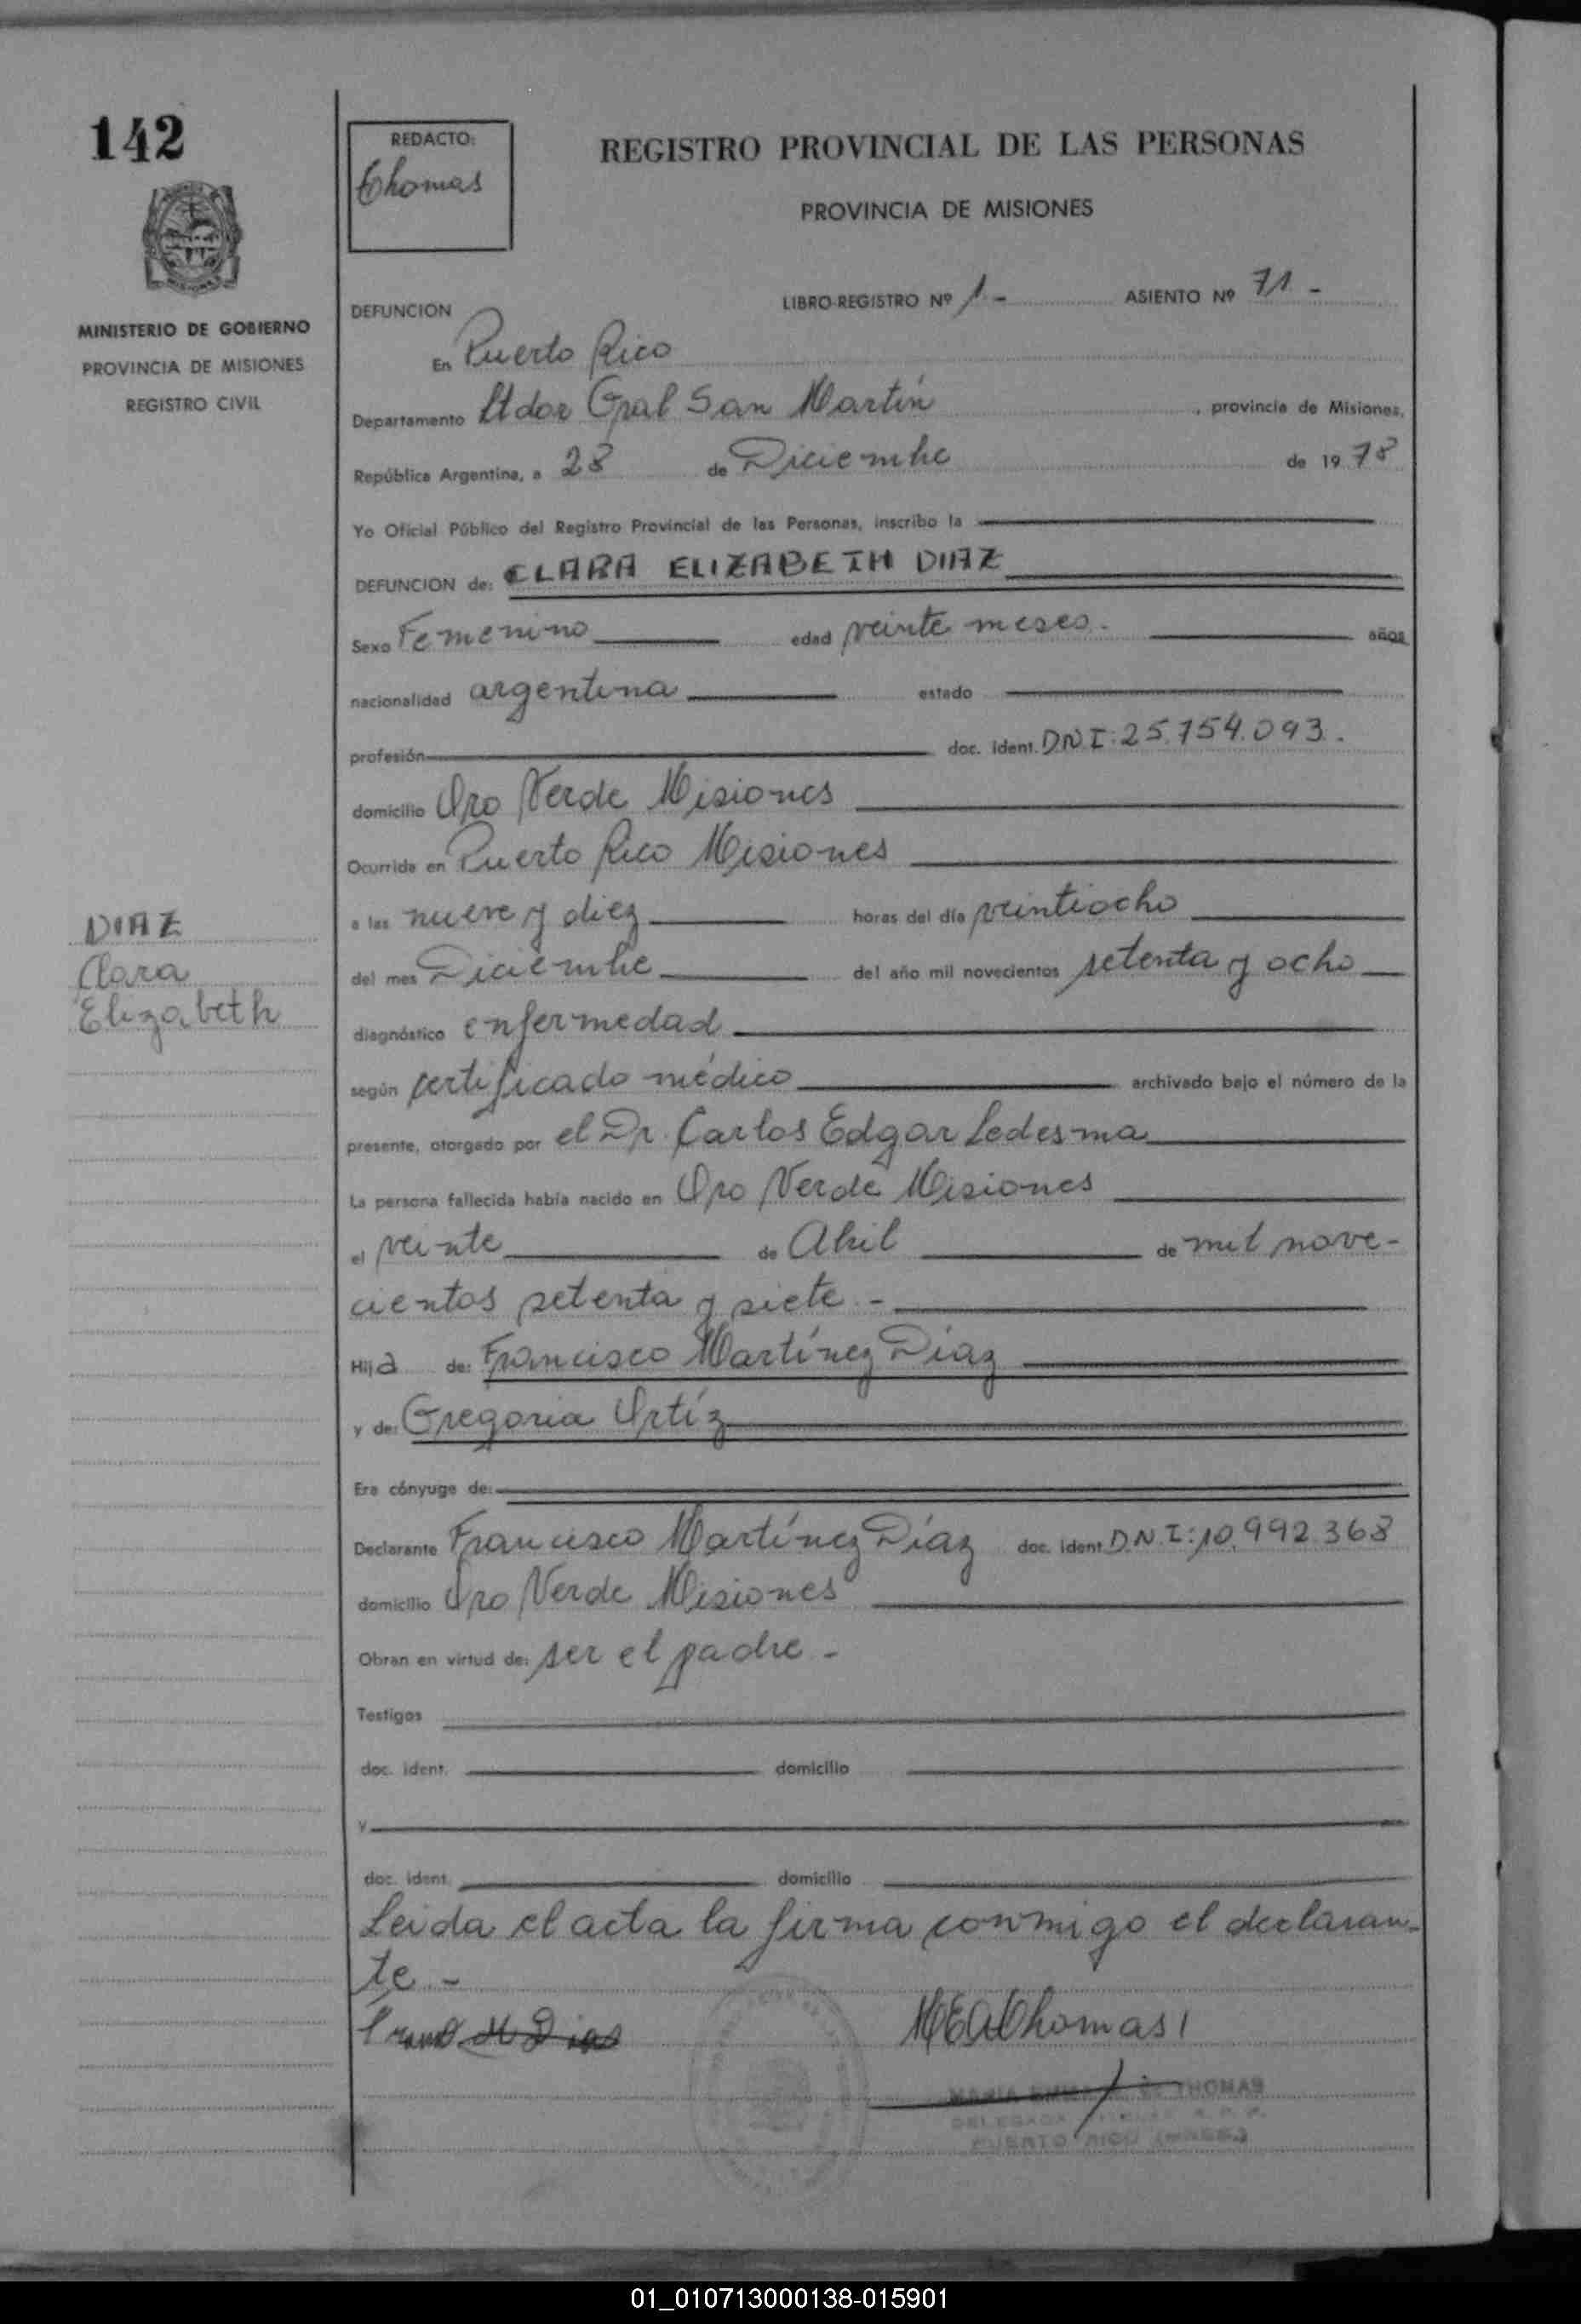 142
REDACTO:
Thomas
REGISTRO PROVINCIAL DE LAS PERSONAS
PROVINCIA DE MISIONES
MINISTERIO DE GOBIERNO
PROVINCIA DE MISIONES
REGISTRO CIVIL
DEFUNCION LIBRO-REGISTRO Nº 1 - ASIENTO Nº 71 -
En Puerto Rico
Departamento Ltdor Gral San Martín, provincia de Misiones,
República Argentina, a 28 de Diciembre de 1978
Yo Oficial Público del Registro Provincial de las Personas, inscribo la
DEFUNCION de: CLARA ELIZABETH DIAZ
Sexo Femenino edad veinte meses. años
nacionalidad argentina estado
profesión doc. ident. D.N.I: 25.754.093.
domicilio Oro Verde Misiones
Ocurrida en Puerto Rico Misiones
a las nueve y diez horas del día veintiocho
del mes Diciembre del año mil novecientos setenta y ocho
DIAZ
Clara
Elizabeth
diagnóstico enfermedad
según certificado médico archivado bajo el número de la
presente, otorgado por el Dr. Carlos Edgar Ledesma
La persona fallecida había nacido en Oro Verde Misiones
el veinte de Abril de mil nove-
cientos setenta y siete -
Hija de: Francisco Martínez Díaz
y de: Gregoria Ortíz
Era cónyuge de:
Declarante Francisco Martínez Díaz doc. ident D.N.I: 10.992.368
domicilio Oro Verde Misiones
Obran en virtud de: ser el padre -
Testigos
doc. ident. domicilio
y
doc. ident. domicilio
Leida el acta la firma conmigo el declaran-
te -
M Dias
Thomas
MARIA EMMA DE THOMAS
DELEGADA TITULAR R. P. P.
PUERTO RICO (MNES.)
01_010713000138-015901